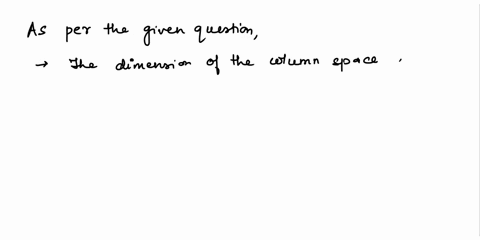 As per the given question,
→ The dimension of the column space .